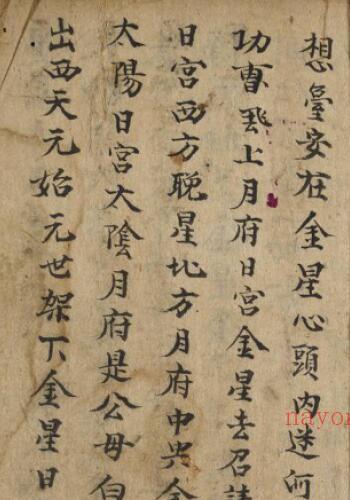 想臺安在金星心頭內迷何
功曹飛上月府日宮金星去召請
日宮西方晚星北方月府中央金
太陽日宮太陰月府是公母白
出西天元始元世架下金星日
nayon